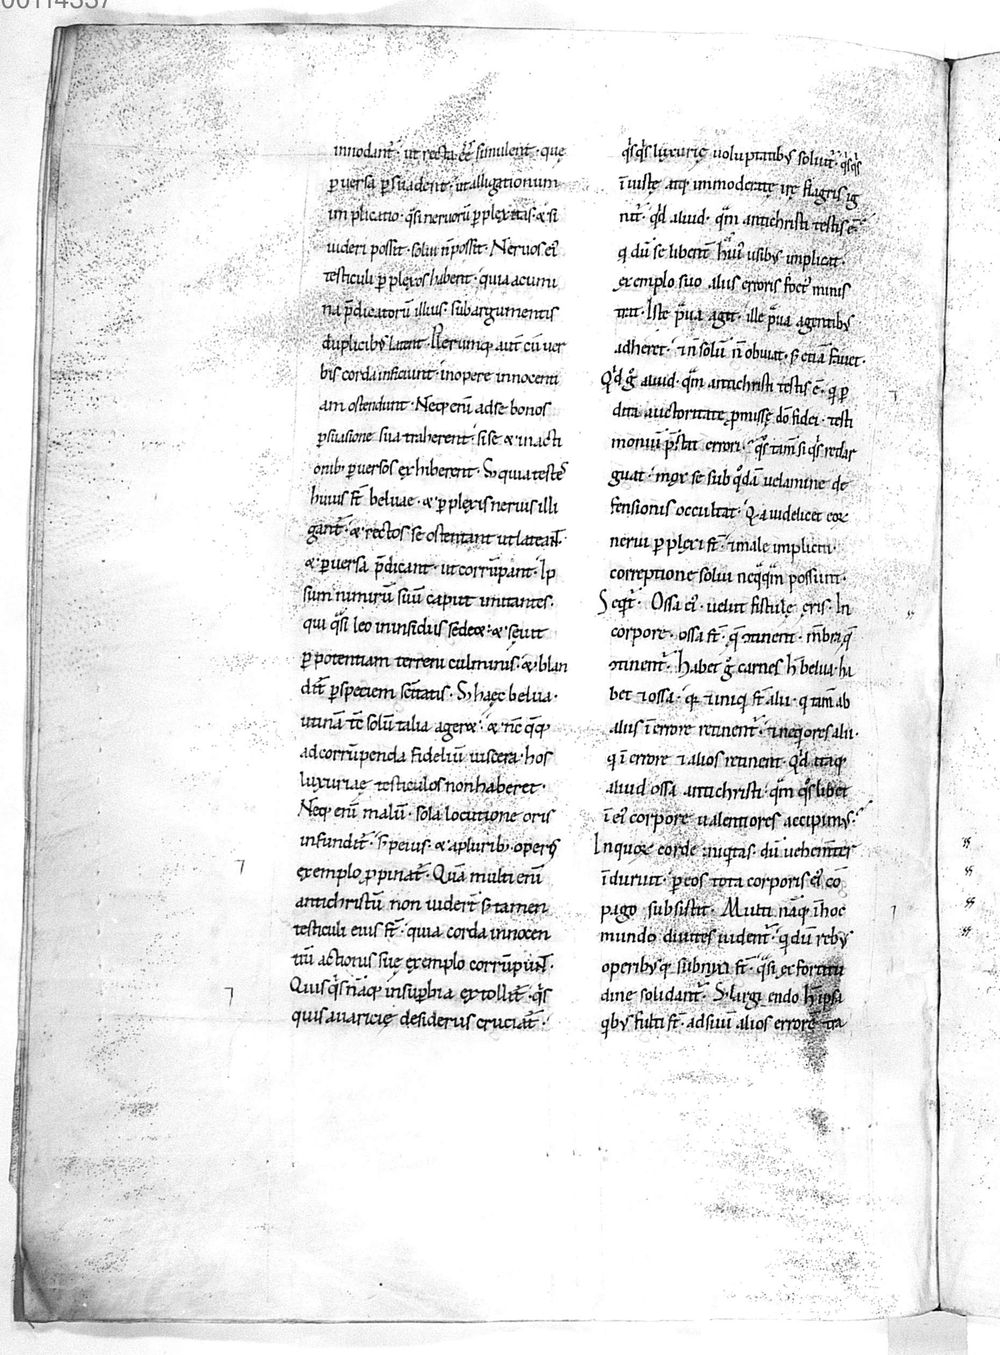 00114337
innodant̄· ut recta eē̄ simulent· quę
puersa psuadent· ut alligationum
implicatio· q̄si neruorū pplexitas· & si
uideri possit· solui n̄ possit· Neruos ei᷒
testiculi pplexos habent· quia acumi
na p̄dicatorū illius· sub argumentis
duplicibꝰ latent· Plerumq; aut̄ cū uer
bis corda inficiunt· in opere innocenti
am ostendunt· Neq; enī ad se bonos
psuasione sua traherent· si se & in acti
onib; puersos exhiberent· Sꝫ quia testes
huius st̄ beluae· & pplexis neruis illi
gant̄· & rectos se ostentant ut lateant·
& puersa p̄dicant· ut corrūpant· Ip
sum nimirū suū caput imitantes·
qui q̄si leo in insidiis sedet· & seuit
p potentiam terreni culminis· & blan
dit̄ p speciem sc̄itatis· Sꝫ haęc belua·
utinā tc̄ solū talia ageret· & nc̄ q̄q;
ad corrūpenda fideliū uiscera· hos
luxurię testiculos non haberet·
Neq; enī malū· sola locutione oris
infundit̄· sꝫ peius· & a plurib; operis
exemplo ppinat̄· Quā multi enī
antichristū non uider̄t sꝫ tamen
testiculi eius st̄· quia corda innocen
tiū actionis suę exemplo corrūpunt·
Quisq̄s nāq; in supbia extollit̄· q̄s
quis auaricię desideriis cruciat̄·
q̄sq̄s luxurię uoluptatibꝰ soluit̄· q̄sq̄s
īiustę atq; immoderatę irę flagris ig
nit̄· qd̄ aliud· qm̄ antichristi testis ē·
q dū se libent̄ hui᷒ usibꝰ implicat·
exemplo suo aliis erroris foet᷒ minis
trat· Iste p̄ua agit· ille p̄ua agentibꝰ
adheret· ⁊ n̄ solū n̄ obuiat· sꝫ etiā fauet·
Qd̄ g̊ aliud· qm̄ antichristi testis ē· q p
dita auctoritate pmissę dō fidei· testi
moniū p̄stat errori· q̄s tam̄ si q̄s redar
guat· mox se sub q̄dā uelamine de
fensionis occultat· Q̄a uidelicet eor̨
nerui pplexi st̄· ⁊ male impliciti·
correptione solui neq̄q̄m possunt·
Seqt̄· Ossa ei᷒· uelut fistulę ęris· In
corpore· ossa st̄· q̄ ↄtinent· m̄bra q̄
ↄtinent̄· Habet g̊ carnes h̄ belua· ha
bet ⁊ ossa· q; ⁊ iniq st̄ alii· q tam̄ ab
aliis ī errore retinent̄· ⁊ neqores alii·
q ī errore ⁊ alios retinent· Qd̄ itaq;
aliud ossa antichristi· qm̄ q̄slibet
ī ei᷒ corpore ualentiores accipimꝰ·
In quor̨ corde iniqtas· dū uehement̄
īduruit· p eos tota corporis ei᷒ cō
pago subsistit· Multi nāq; ī hoc
mundo diuites uident̄· q dū rebꝰ
operibꝰq; subnixi st̄· q̄si ex fortitu
dine solidant̄· Sꝫ largiendo h̄ ipsa
qbꝰ fulti st̄· ad suū alios errorē tra